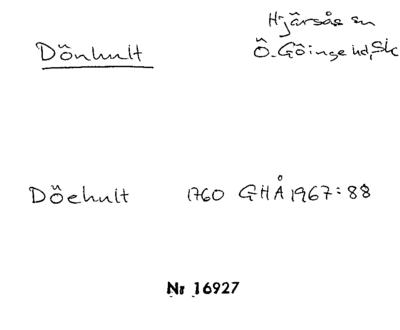 Hjärsås sn
Dönhult
Ö. Göinge hd, Sk
Döehult 1760 GHÅ 1967:88
Nr 16927